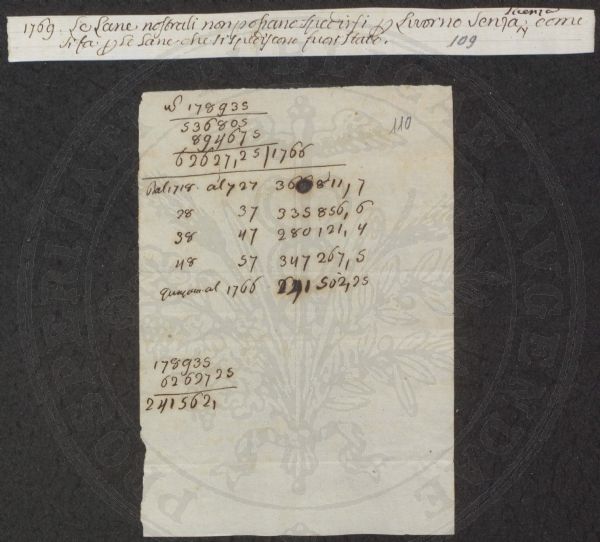 1769. Le Lane nostrali non possano spedirsi p Livorno senza licenza, come
si fa p le Lane che si spediscono fuori Stato.
109
110
178935
536805
89467 5
62627,25 | 1766
Dal 1718. al 727 366811,7
28 37 335856,6
38 47 280121,4
48 57 347267,5
al 1766 241502,25
178935
6262725
241562,